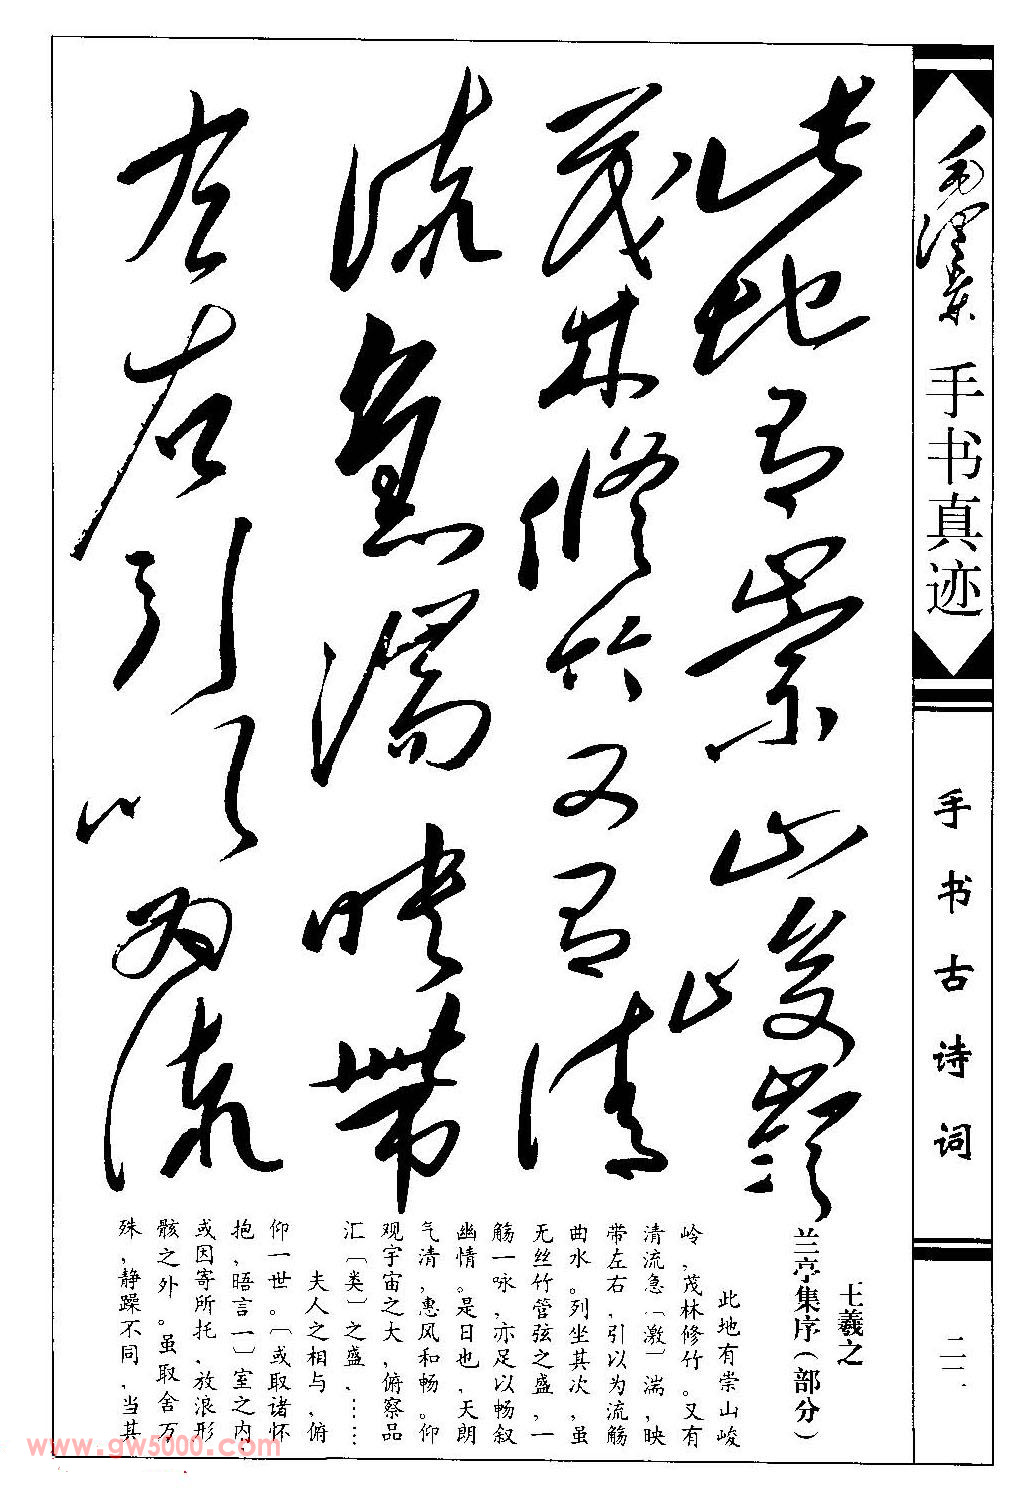 毛泽东手书真迹
手书古诗词
此地有崇山峻岭
茂林修竹又有清
流急湍映带
左右引以为流
王羲之
兰亭集序(部分)
此地有崇山峻
岭,茂林修竹。又有
清流急〔激〕湍,映
带左右,引以为流觞
曲水。列坐其次,虽
无丝竹管弦之盛,一
觞一咏,亦足以畅叙
幽情。是日也,天朗
气清,惠风和畅。仰
观宇宙之大,俯察品
汇〔类〕之盛,……
夫人之相与,俯
仰一世。〔或取诸怀
抱,晤言一〕室之内
或因寄所托,放浪形
骸之外。虽取舍万
殊,静躁不同,当其
www.gw5000.com